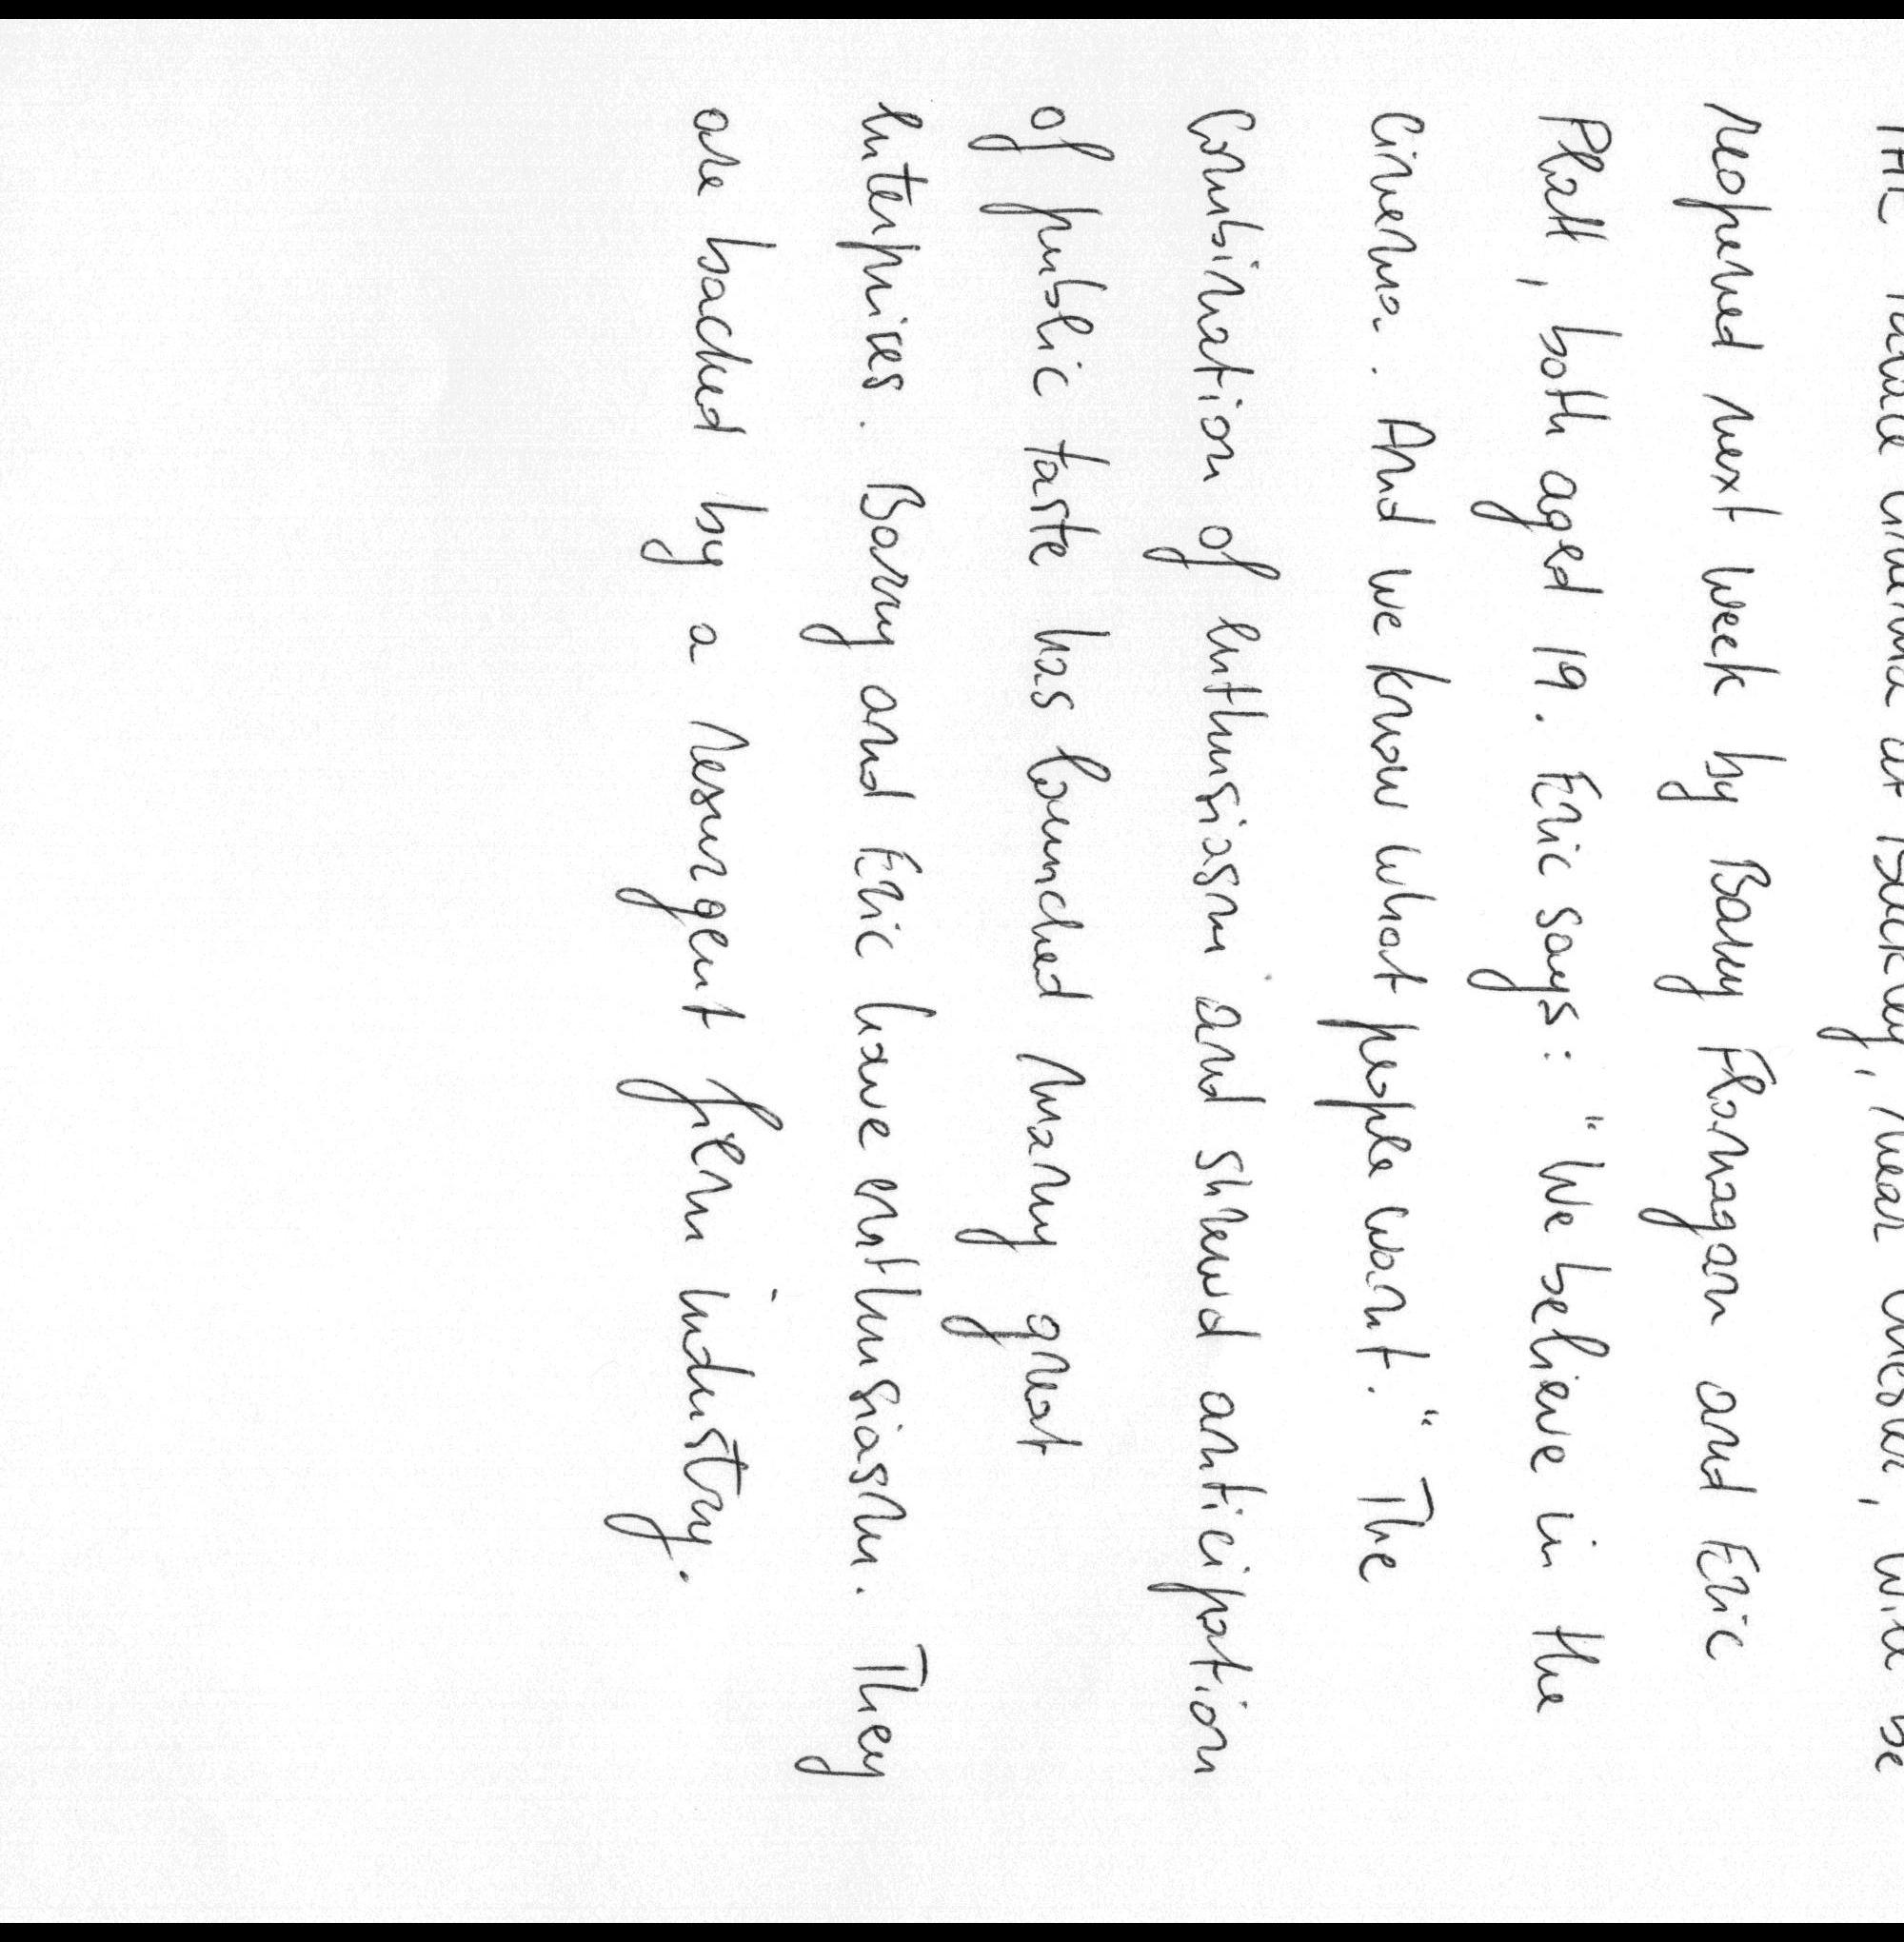 THE Tatler cinema at Buckley, near Chester, will be
reopened next week by Barry Flanagan and Eric
Platt, both aged 19. Eric says: "We believe in the
cinema. And we know what people want." The
combination of enthusiasm and shrewd anticipation
of public taste has launched many great
enterprises. Barry and Eric have enthusiasm. They
are backed by a resurgent film industry.